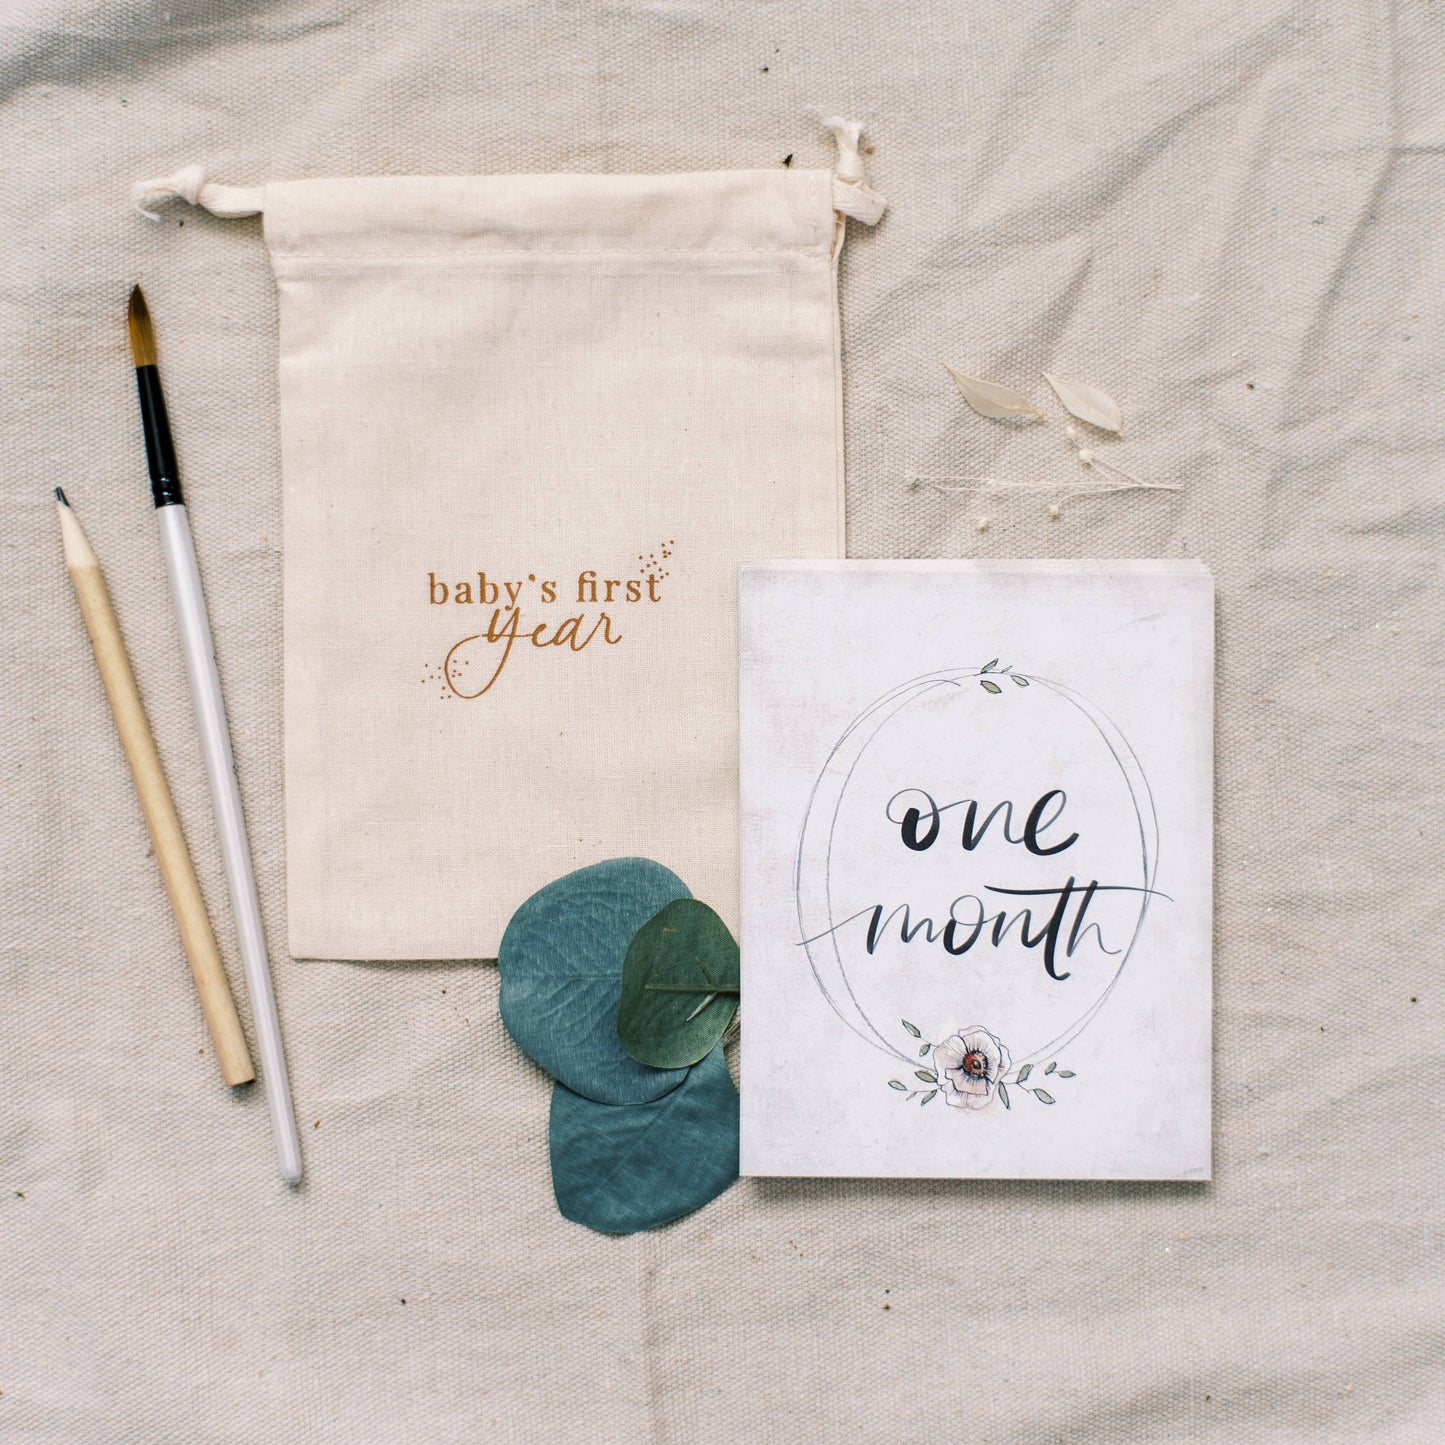 baby's first
year
one
month